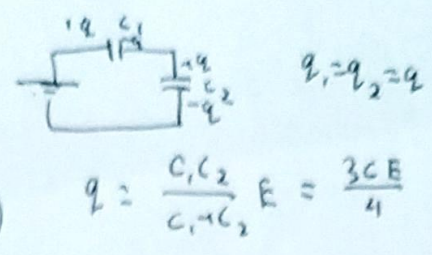 +q C₁
-q
+q
C₂
-q
q₁ = q₂ = q
q = C₁C₂ / (C₁ + C₂) E = 3CE / 4